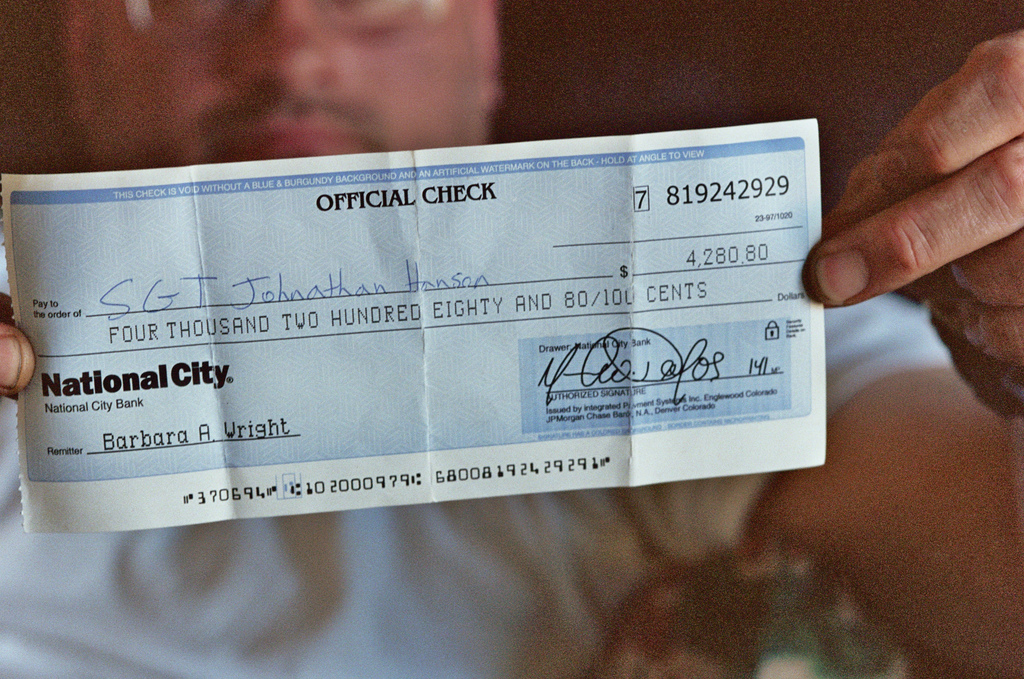 THIS CHECK IS VOID WITHOUT A BLUE & BURGUNDY BACKGROUND AND AN ARTIFICIAL WATERMARK ON THE BACK - HOLD AT ANGLE TO VIEW
OFFICIAL CHECK
7 819242929
23-97/1020
Pay to
the order of SGT Johnathan Hanson $ 4,280.80
FOUR THOUSAND TWO HUNDRED EIGHTY AND 80/100 CENTS Dollars
National City®
National City Bank
Drawer: National City Bank
AUTHORIZED SIGNATURE
Issued by Integrated Payment Systems Inc. Englewood Colorado
JPMorgan Chase Bank, N.A., Denver Colorado
Remitter Barbara A. Wright
⑈370694⑈ ⑆102000979⑆ 68008192429291⑈